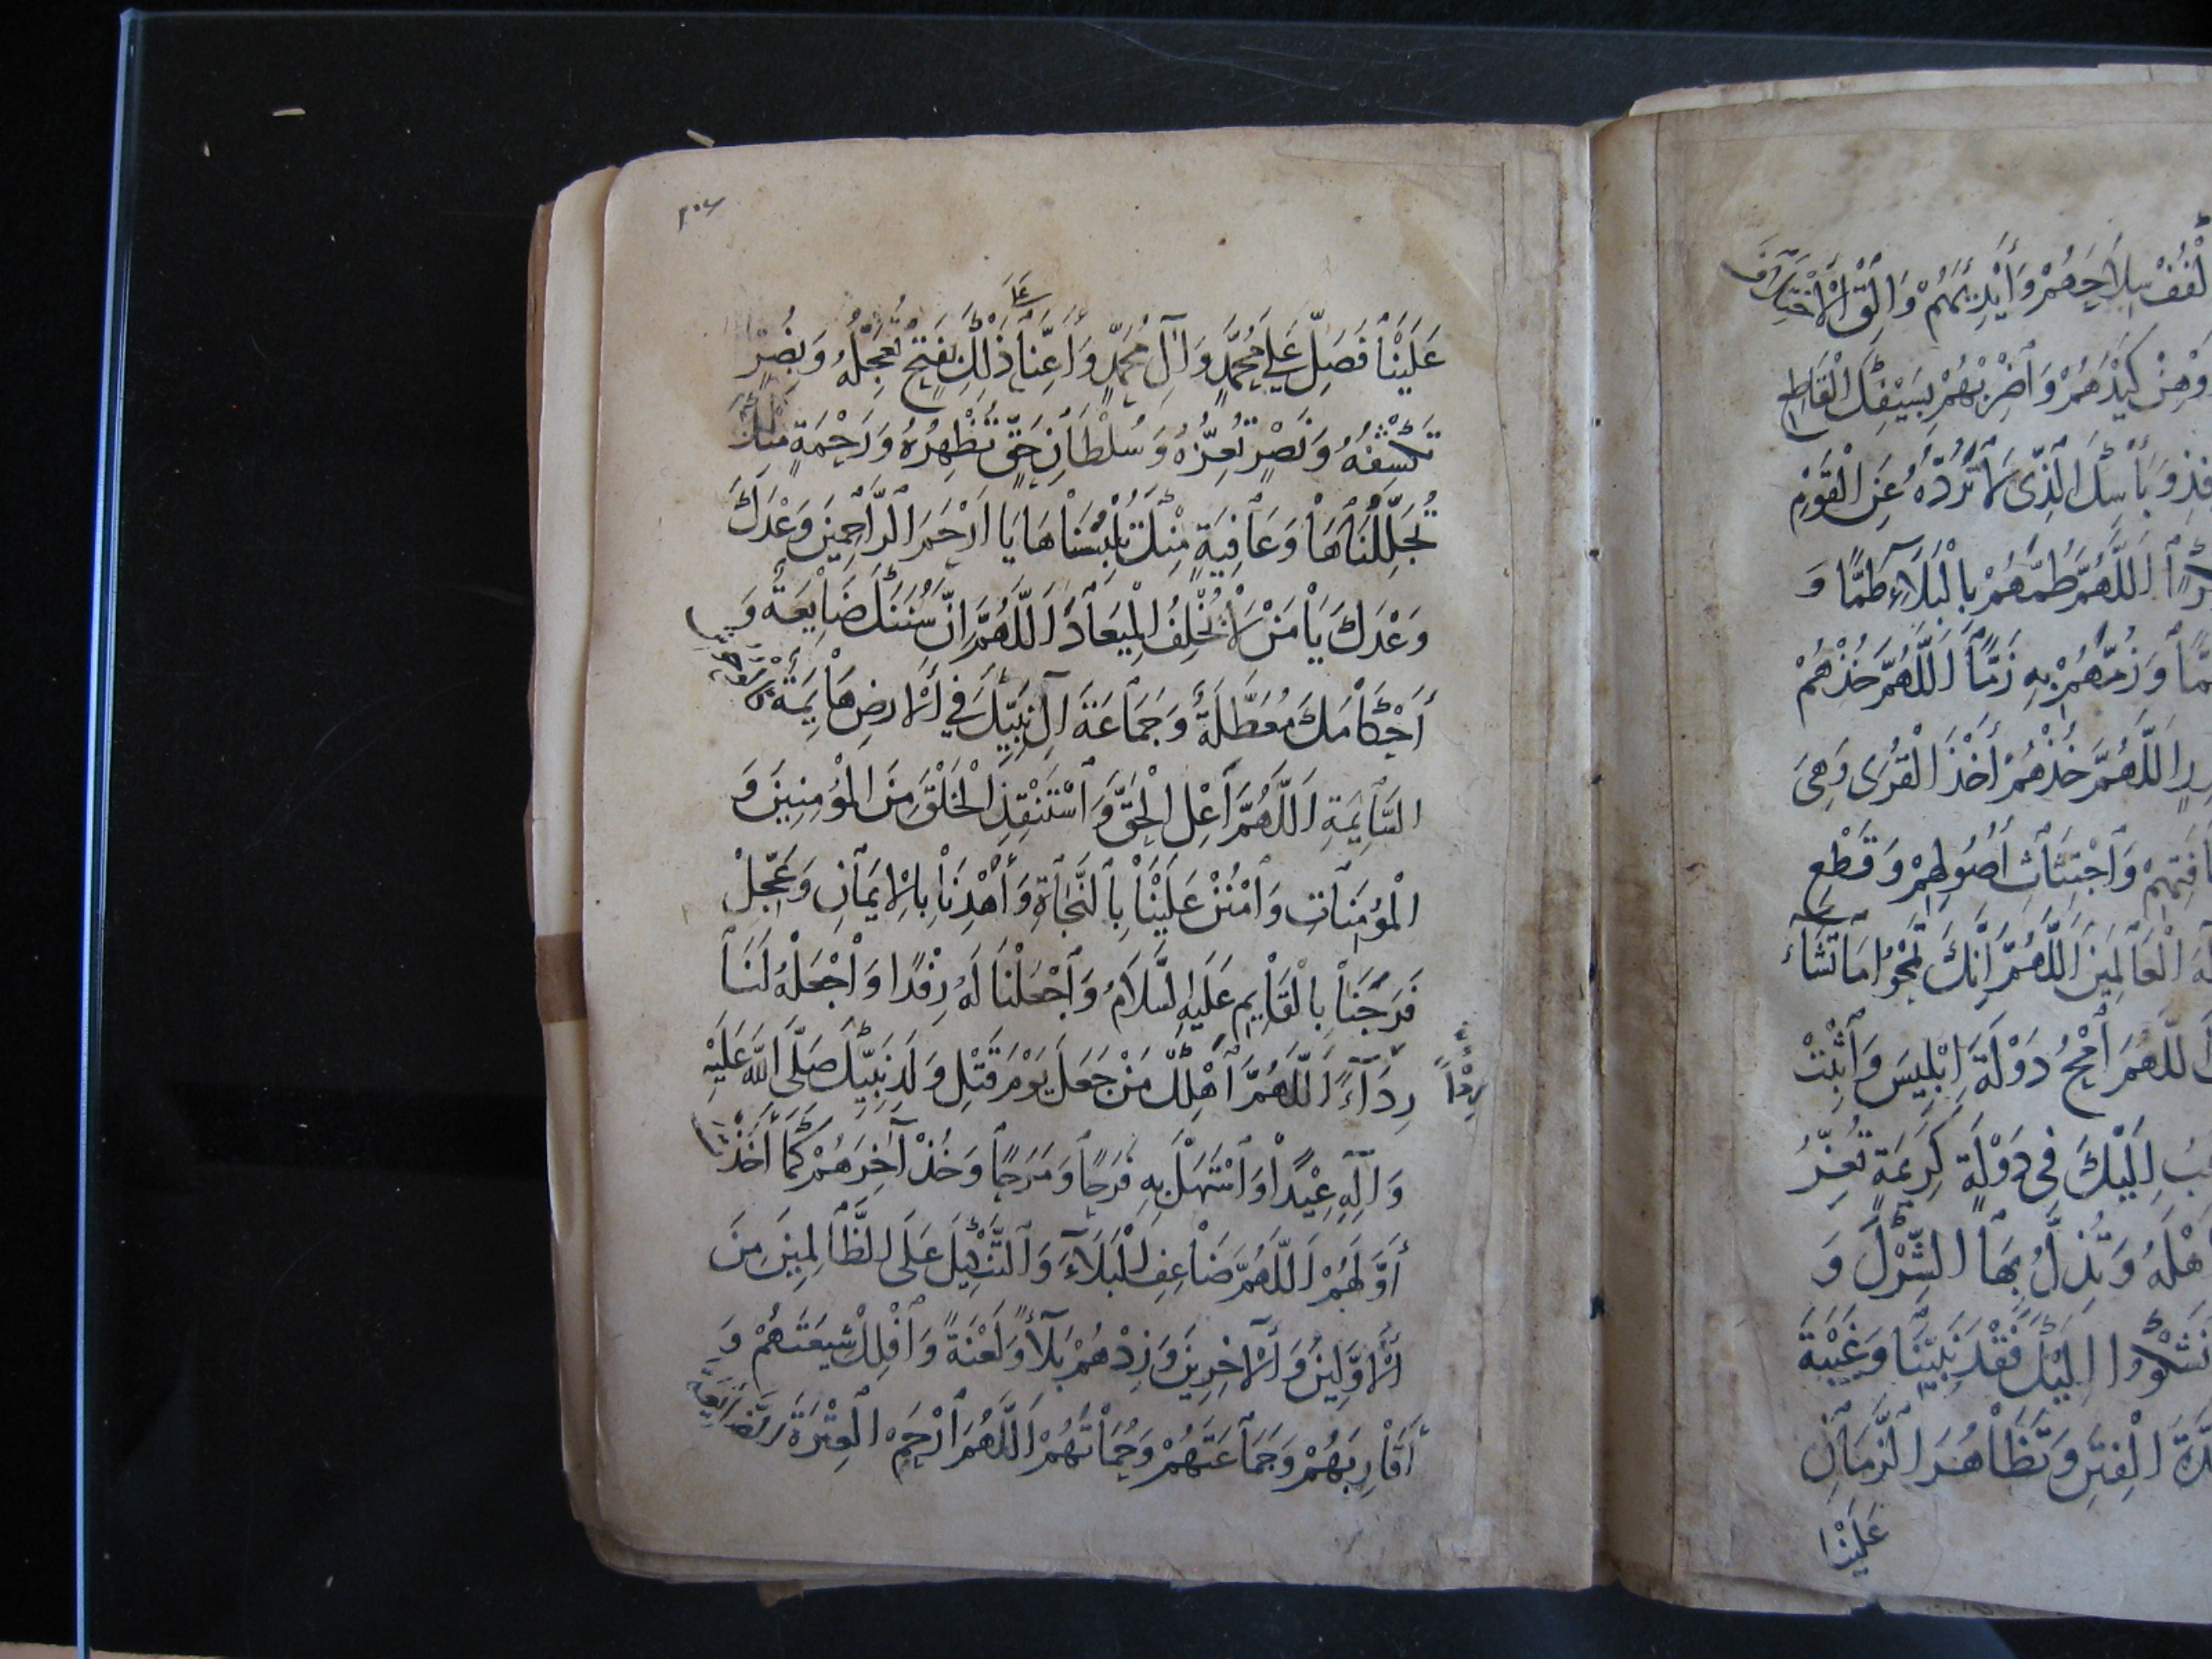 لْفُفْ سِلَاحَهُمْ وَأَيْدِيَهُمْ وَأَلْقِ الْاخْتِلَافَ
وَهِنْ كَيْدَهُمْ وَاضْرِبْهُمْ بِسَيْفِكَ الْقَاطِعِ
وَبَأْسِكَ الَّذِي لَا تَرُدُّهُ عَنِ الْقَوْمِ
اَللَّهُمَّ طُمَّهُمْ بِالْبَلَاءِ طَمًّا وَ
وَزُمَّهُمْ بِهِ زَمًّا اَللَّهُمَّ خُذْهُمْ
اَللَّهُمَّ خُذْهُمْ أَخْذَ الْقُرَى وَهِيَ
وَاجْتِثَاثِ أُصُولِهِمْ وَقَطْعِ
الْعَالَمِينَ اَللَّهُمَّ اِنَّكَ تَمْحُوا مَا تَشَاءُ
للَّهُمَّ امْحُ دَوْلَةَ اِبْلِيسَ وَاَثْبِتْ
اِلَيْكَ فِي دَوْلَةٍ كَرِيمَةٍ تُعِزُّ
هْلَهُ وَتُذِلُّ بِهَا الشِّرْكَ وَ
نَشْكُوا اِلَيْكَ فَقْدَ نَبِيِّنَا وَغَيْبَةَ
الْفِتَنِ وَتَظَاهُرَ الزَّمَانِ
عَلَيْنَا
٢٠٤
عَلَيْنَا فَصَلِّ عَلَى مُحَمَّدٍ وَآلِ مُحَمَّدٍ وَأَعِنَّا ذَلِكَ بِفَتْحٍ تُعَجِّلُهُ وَبِضُرٍّ
عَلَى
تَكْشِفُهُ وَنَصْرٍ تُعِزُّهُ وَسُلْطَانِ حَقٍّ تُظْهِرُهُ وَرَحْمَةٍ مِنْكَ
تُجَلِّلُنَاهَا وَعَافِيَةٍ مِنْكَ تُلْبِسُنَاهَا يَا اَرْحَمَ الرَّاحِمِينَ وَعْدَكَ
وَعْدَكَ يَا مَنْ لَا يُخْلِفُ الْمِيعَادَ اَللَّهُمَّ اِنَّ سُنَنَكَ ضَايِعَةٌ وَ
أَحْكَامَكَ مُعَطَّلَةٌ وَجَمَاعَةَ آلِ نَبِيِّكَ فِي الْاَرْضِ هَايِمَةٌ
السَّايِمَةِ اَللَّهُمَّ اَعْلِ الْحَقَّ وَاسْتَنْقِذِ الْخَلْقَ مِنَ الْمُؤْمِنِينَ وَ
الْمُؤْمِنَاتِ وَامْنُنْ عَلَيْنَا بِالنَّجَاةِ وَاهْدِنَا بِالْاِيمَانِ وَعَجِّلْ
فَرَجَنَا بِالْقَايِمِ عَلَيْهِ السَّلَامُ وَاجْعَلْنَا لَهُ رِفْدًا وَاجْعَلْهُ لَنَا
رِدَآءً اَللَّهُمَّ اَهْلِكْ مَنْ جَعَلَ يَوْمَ قَتْلِ وَلَدِ نَبِيِّكَ صَلَّى اللهُ عَلَيْهِ
رِدْءًا
وَآلِهِ عِيْدًا وَاسْتَهَلَّ بِهِ فَرَحًا وَمَرَحًا وَخُذْ آخِرَهُمْ كَمَا أَخَذْتَ
أَوَّلَهُمْ اَللَّهُمَّ ضَاعِفِ الْبَلَآءَ وَالتَّنْكِيلَ عَلَى الظَّالِمِينَ مِنَ
الْاَوَّلِينَ وَالْآخِرِينَ وَزِدْهُمْ بَلَآءً وَلَعْنَةً وَاَهْلِكْ شِيعَتَهُمْ وَ
أَقَارِبَهُمْ وَجَمَاعَتَهُمْ وَحُمَاتَهُمْ اَللَّهُمَّ ارْحَمِ الْعِتْرَةَ